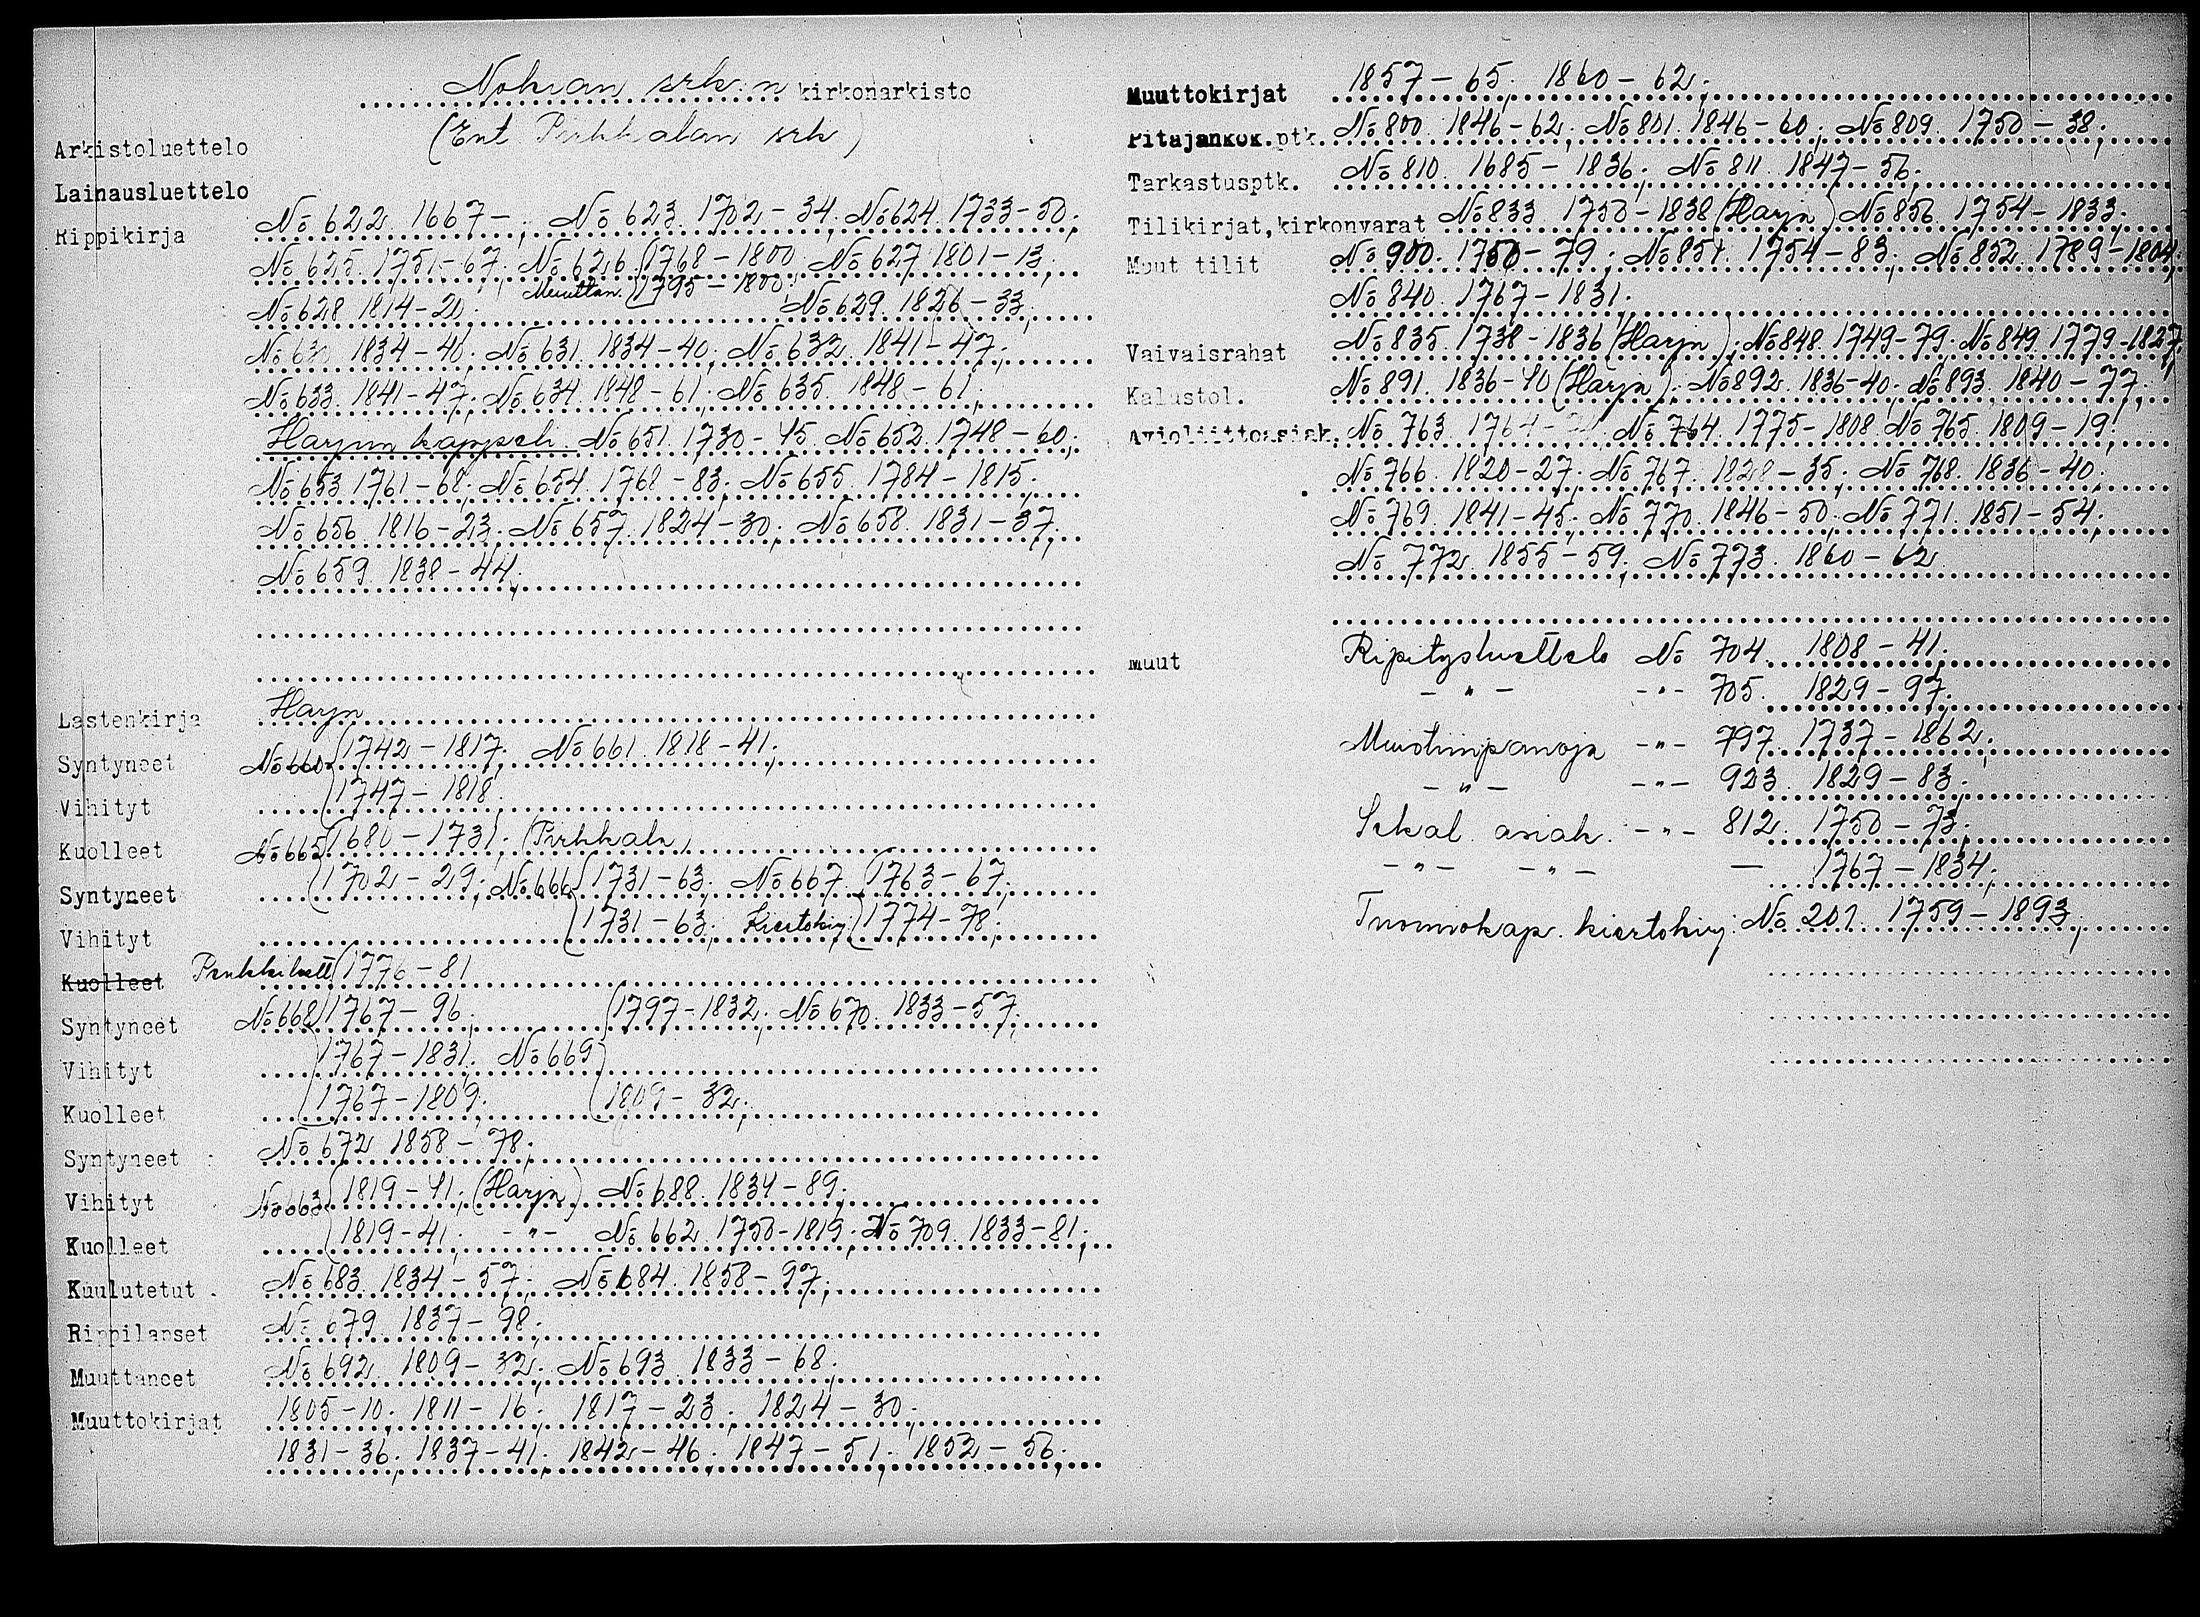 Nokian srk:n kirkonarkisto
(Ent Pirkkalan srk)
Arkistoluettelo
Lainausluettelo
Rippikirja No 622. 1667-; No 623. 1702-34; No 624. 1733-50;
No 625. 1751-67; No 626. (1768-1800; No 627 1801-13;
Muuttan. (1795-1800;
No 628 1814-20; No 629. 1826-33;
No 630 1834-40; No 631. 1834-40; No 632. 1841-47;
No 633. 1841-47; No 634. 1848-61; No 635. 1848-61;
Harjun kappeli. No 651. 1730-45. No 652. 1748-60;
No 653 1761-68; No 654. 1768-83; No 655. 1784-1815;
No 656. 1816-23; No 657. 1824-30; No 658. 1831-37;
No 659. 1838-44;
Lastenkirja Harju
Syntyneet No 660 (1742-1817; No 661. 1818-41;
Vihityt (1747-1818
Kuolleet No 665 (1680-1731; (Pirkkala)
Syntyneet (1702-29; No 666 (1731-63; No 667. (1763-67;
Vihityt (1731-63; Kiertokirj. (1774-78;
Kuolleet Penkkiluett (1776-81
Syntyneet No 668 (1767-96; (1797-1832; No 670. 1833-57;
Vihityt (1767-1831; No 669
Kuolleet (1767-1809; (1809-32;
Syntyneet No 672 1858-78;
Vihityt No 663 (1819-41; (Harju) No 688. 1834-89;
Kuolleet (1819-41; -"- No 662. 1750-1819; No 709. 1833-81;
Kuulutetut No 683. 1834-57; No 684. 1858-97;
Rippilapset No 679. 1837-98;
Muuttaneet No 692. 1809-32; No 693. 1833-68;
Muuttokirjat 1805-10; 1811-16; 1817-23; 1824-30;
1831-36; 1837-41; 1842-46; 1847-51; 1852-56;
Muuttokirjat 1857-65; 1860-62;
Pitäjänkok.ptk. No 800. 1846-62; No 801. 1846-60; No 809. 1750-38;
Tarkastusptk. No 810. 1685-1836; No 811. 1847-56;
Tilikirjat,kirkonvarat No 833. 1750-1838 (Harju) No 856. 1754-1833;
Muut tilit No 900. 1750-79; No 851. 1754-83; No 852. 1789-1804;
No 840. 1767-1831;
Vaivaisrahat No 835. 1738-1836 (Harju); No 848. 1749-79; No 849. 1779-1827;
Kalustol. No 891. 1836-40 (Harju); No 892. 1836-40; No 893. 1840-77;
Avioliittoasiak. No 763. 1764- No 764. 1775-1808 No 765. 1809-19;
No 766. 1820-27; No 767. 1828-35; No 768. 1836-40;
No 769. 1841-45; No 770. 1846-50; No 771. 1851-54;
No 772. 1855-59; No 773. 1860-62
Muut Ripitysluettelo No 704. 1808-41;
-"- -"- 705. 1829-97;
Muistiinpanoja -"- 797. 1737-1862;
-"- -"- 923. 1829-83;
Sekal. asiak. -"- 812. 1750-73;
-"- -"- - 1767-1834;
Tuomiokap. kiertokirj: No 201. 1759-1893;